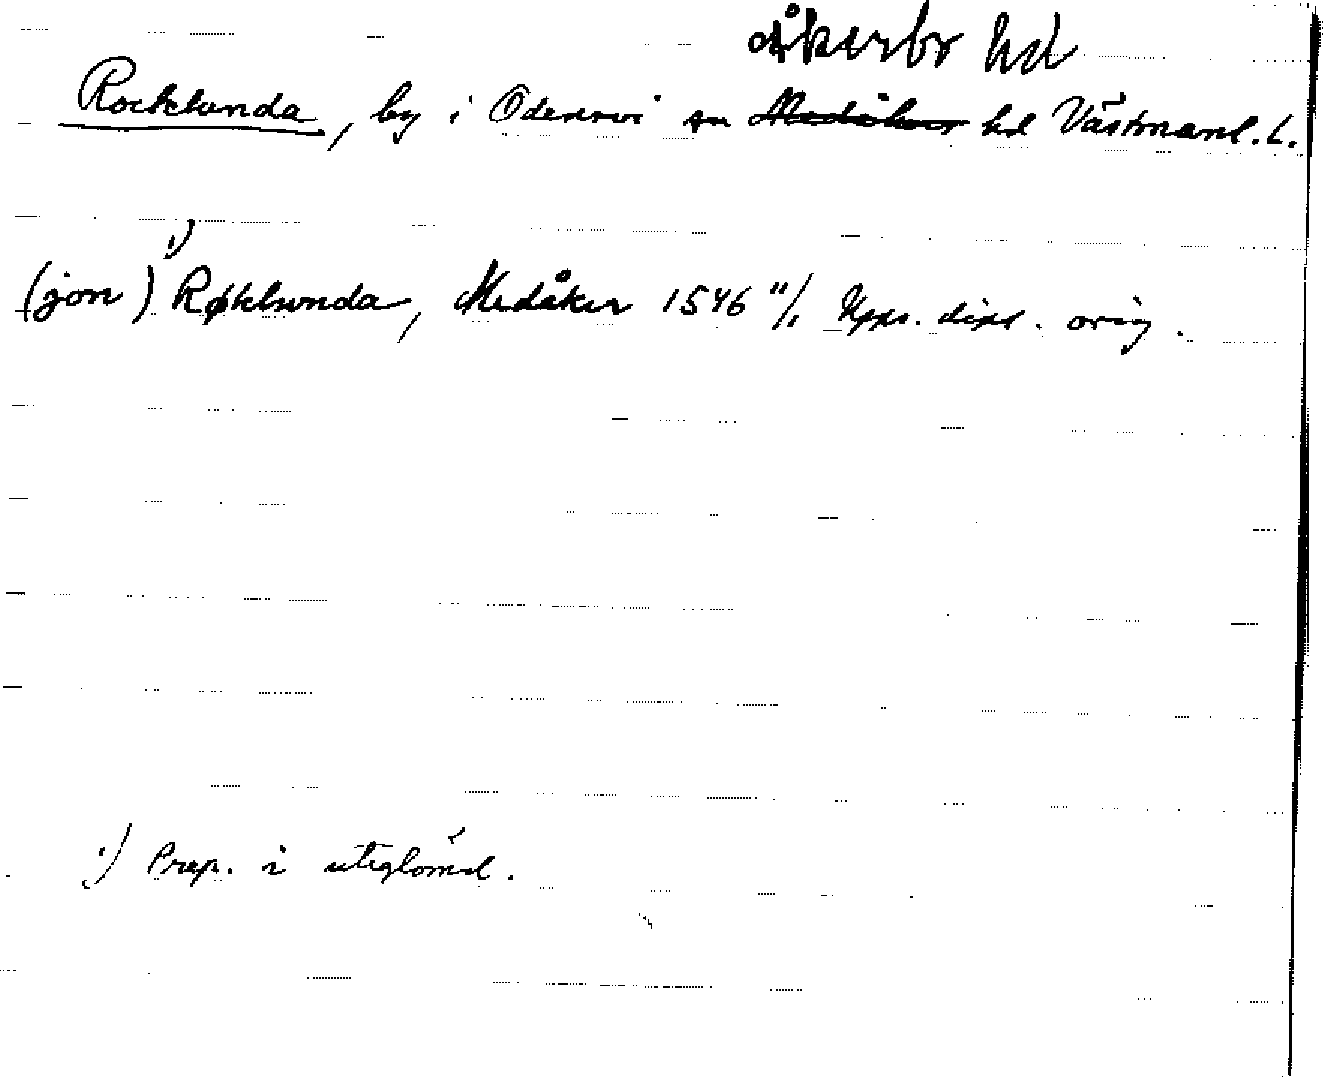 Åkerbr hd
Rocklunda, by i Odensvi sn Medåker hd Västmanl. L.
1)
(jon) Røklunda, Medåker 1546 11/1 Upps. dipl. orig.
1) Prep. i uteglömd.